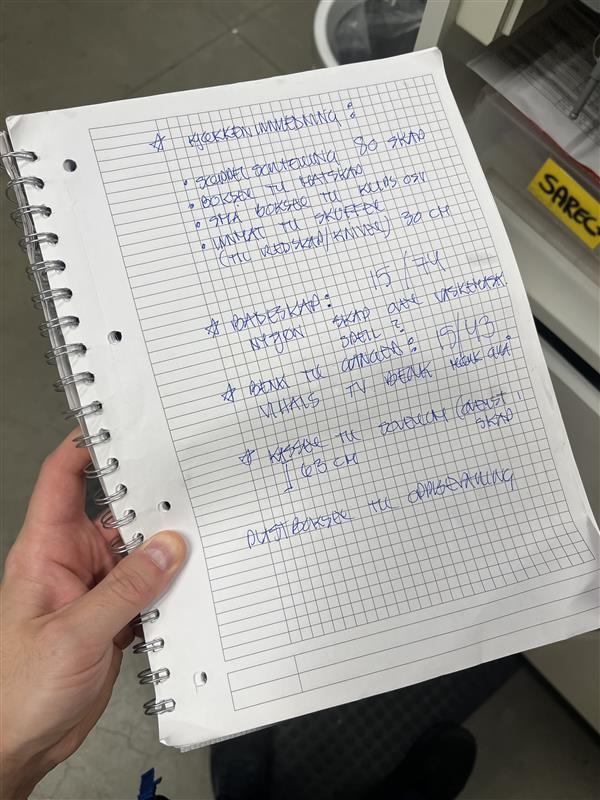 ☆ KJØKKENINNREDNING:
• SØPPEL SORTERING 80 SKAP
• BOKSER TIL MATSKAP
• SMÅ BOKSER TIL KLIPS OSV
• INNMAT TIL SKUFFER
(TIL REDSKAP/KNIVER) 30 CM
☆ BADESKAP: 15/74
NYSJÖN SKAP OVER VASKEMASK.
SPEIL?
☆ BENK TIL GANGEN: 15/43
VIHALS TV BENK
☆ KASSER TIL SOVEROM (ØVERST I SKAP
63 CM
PLASTBOKSER TIL OPPBEVARING
SAREC